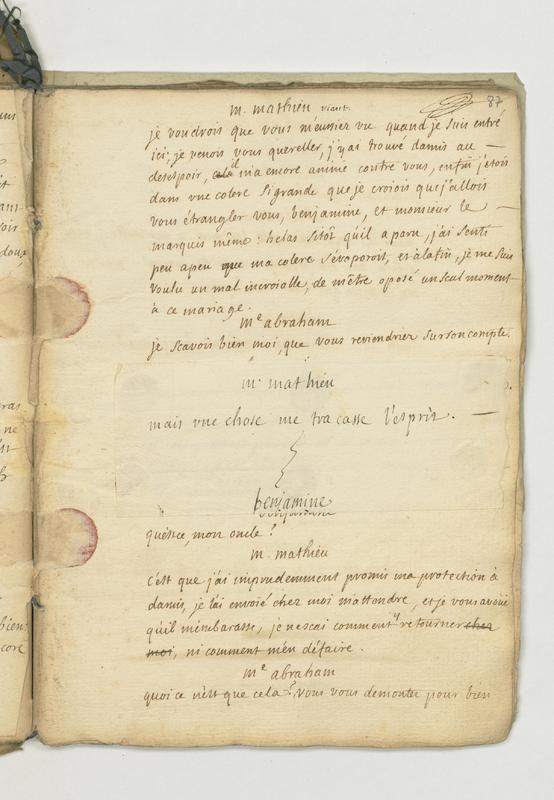 87
m. mathieu riant.
je voudrois que vous m'eussiez vu quand je suis entré
ici; je venois vous quereller, j'y ai trouvé damis au —
desespoir, il m'a encore animé contre vous, enfin j'etois
dans vne colere si grande que je croiois que j'allois
vous étrangler vous, benjamine, et monsieur le —
marquis même: helas sitôt qu'il a paru, j'ai senti
peu apeu que ma colere s'évaporoit, et àlafin, je me suis
voulu un mal incroiable, de m'être oposé un seul moment
à ce mariage.
Me abraham
je scavois bien moi, que vous reviendriez sur son compte.
m. mathieu
mais vne chose me tracasse l'esprit. —
benjamine
quèsce, mon oncle?
m. mathieu
c'est que j'ai imprudemment promis ma protection à
damis, je l'ai envoié chez moi m'attendre, et je vous avoüe
qu'il m'embarasse, je ne scai comment y retourner chez
moi, ni comment m'en défaire.
Me abraham
quoi ce n'est que cela? vous vous demontez pour bien